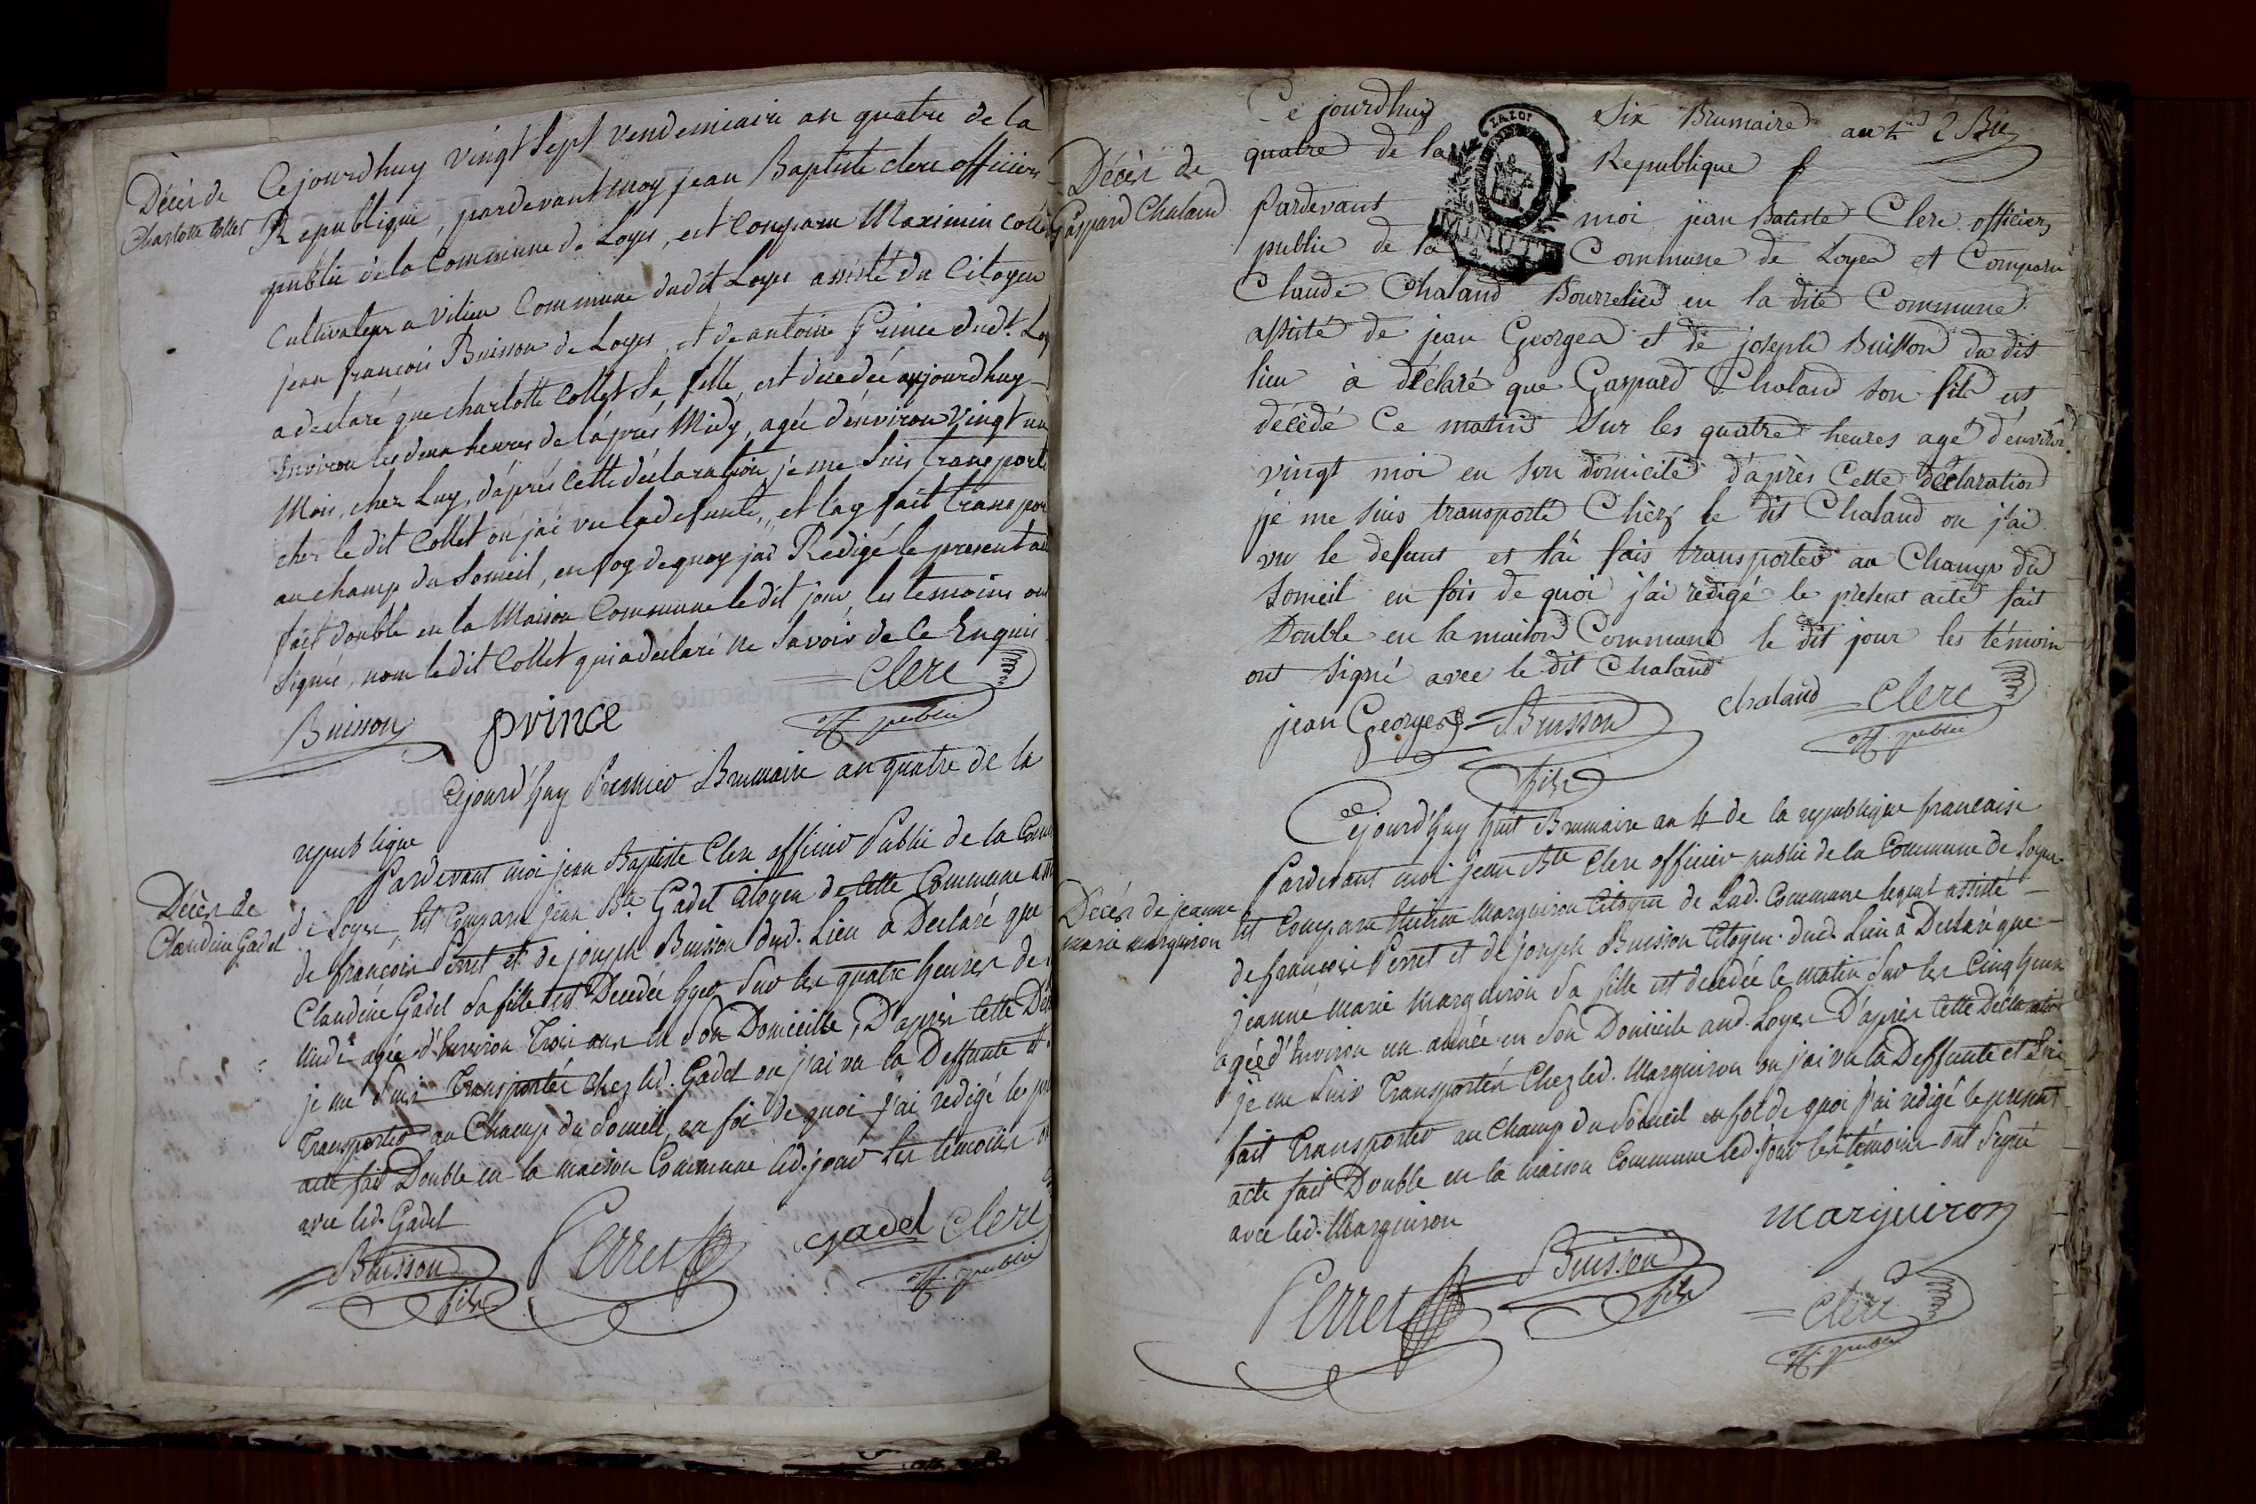 Décès de
Charlotte Collet
Cejourdhuy vingt Sept vendemiaire an quatre de la
Republique, pardevant moy jean Baptiste clerc officier
public de la Commune de Loyes, est Comparu Maximin Collet
Cultivateur a Vilieu Commune dudit Loyes assisté du Citoyen
jean françois Buisson de Loyes, et de antoine Prince dudt. Loy
a declaré que charlotte Collet Sa fille, est decedée aujourdhuy
Environ les deux heures de láprés Midy, agée d'environ vingt un
Mois, chez Luy, dáprés Cette déclaration je me Suis transporté
chez le dit Collet ou jai vu la defunte, et lay fait transpor
au champ du Someil, en foy de quoy jai Redigé le present acte
fait double en la Maison Commune le dit jour, les temoins ont
Signé, non le dit Collet qui a declaré ne Savoir de Ce Enquis
Buisson prince Clerc
off. public
Cejourd'huy Premier Brumaire an quatre de la
republique
Décès de
Claudine Gadel
Pardevant moi jean Baptiste Clerc officier Public de la Com
de Loyes, est Comparu jean Bte. Gadel Citoyen de Cette Commune assi
de françois Perret et de joseph Buisson dud. Lieu a Declaré que
Claudine Gadel Sa fille est Decedée hyer Sur les quatre heures de
agée d'Environ Trois ans en Son Domicille, D'apres Cette Dé
je me Suis Transporté Chez led. Gadel ou j'ai vu la Deffunte et
Transporter au Champ du Someil, en foi de quoi j'ai redigé le pr
acte fait Double en la maison Commune led. jour les temoins
avec led. Gadel
Buisson fils Perret gadel Clerc
off. public
Ce jourdhuy Six Brumaire an 4 2 Bre
quatre de la Republique
LA LOI
MINUTE
Décès de
Gaspard Chaland
Pardevant moi jean Batiste Clerc officier
public de la Commune de Loyes et Comparu
Claude Chaland Bourrelier en la dite Commune
assisté de jean Georges et de joseph Buisson du dit
lieu à déclaré que Gaspard Chaland son fils est
décédé Ce matin Sur les quatre heures agé d'environ
vingt moi en son domicile d'après Cette déclaration
je me suis transporté Chéz le dit Chaland ou j'ai
vu le defunt et l'ai fais transporter au Champ du
Someil en fois de quoi j'ai rédigé le présent acte fait
Double en la maison Commune le dit jour les témoin
ont signé avec le dit Chaland
jean Georges Buisson fils chaland Clerc
off. public
Cejourd'huy huit Brumaire an 4 de la republique francaise
Pardevant moi jean Bte Clerc officier public de la Commune de Loyes
Décès de jeanne
marie marguiron
est Comparu Marguiron Citoyen de Lad. Commune lequel assisté
de françois Perret et de joseph Buisson Citoyen dud. Lieu a Declaré que
jeanne marie Marguiron Sa fille est decedée le matin Sur les Cinq heures
agée d'Environ un année en Son Domicile aud. Loyes D'apres Cette Déclaration
je me Suis Transporté Chez led. Marguiron ou j'ai vu la Deffunte et
fait Transporter au Champ du Someil en foi de quoi j'ai redigé le present
acte fait Double en la maison Commune led. jour les témoins ont Signé
avec led. Marguiron
marguiron
Perret Buisson fils
Clerc
off. public